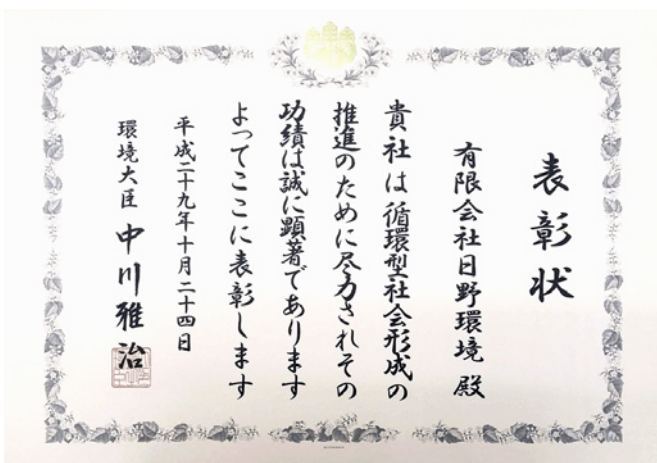 表彰状
有限会社日野環境 殿
貴社は循環型社会形成の
推進のために尽力されその
功績は誠に顕著であります
よってここに表彰します
平成二十九年十月二十四日
環境大臣 中川雅治